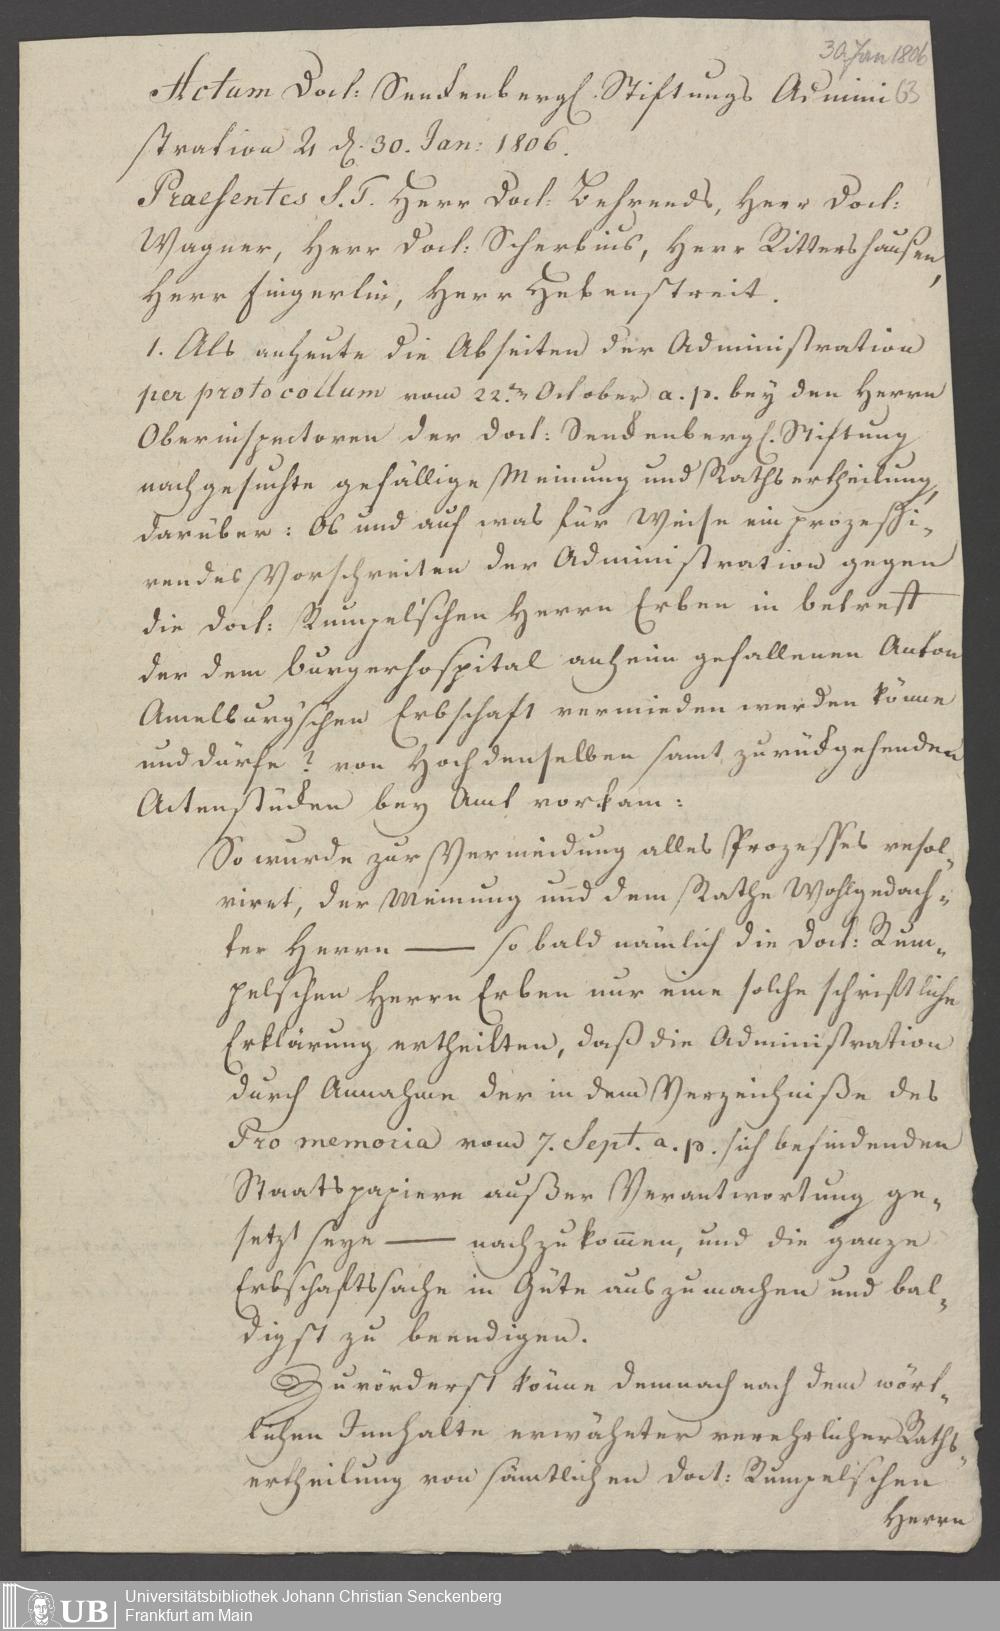 30 Jan 1806
63
Actum Doct: Senckenbergl. Stiftungs Admini
stration ♃ d. 30. Jan: 1806.
Praesentes S.T. Herr Doct: Behrends, Herr Doct:
Wagner, Herr Doct: Scherbius, Herr Rittershausen,
Herr Fingerlin, Herr Hebenstreit.
1. Als anheute die Abseiten der Administration
per protocollum vom 22.ten October a. p. bey den Herrn
Oberinspectoren der Doct: Senckenbergl. Stiftung
nachgesuchte gefällige Meinung und Rathsertheilung,
darüber: Ob und auf was für Weise ein prozessi-
rendes Vorschreiten der Administration gegen
die Doct: Rumpel'schen Herrn Erben in betreff
der dem Burgerhospital anheim gefallenen Anton
Amelburg'schen Erbschaft vermieden werden könne
und dürfe? von Hochdenselben samt zurückgehenden
Actenstücken bey Amt vorkam:
So wurde zur Vermeidung alles Prozesses resol-
viret, der Meinung und dem Rathe Wohlgedach-
ter Herrn — so bald nämlich die Doct: Rum-
pelschen Herrn Erben nur eine solche schriftliche
Erklärung ertheilten, daß die Administration
durch Annahme der in dem Verzeichniße des
Pro memoria vom 7. Sept. a. p. sich befindenden
Staatspapiere außer Verantwortung ge-
setzt seye — nachzukommen, und die ganze
Erbschaftssache in Güte auszumachen und bal-
digst zu beendigen.
Zuvörderst könne demnach nach dem wört-
lichen Innhalte erwähnter verehrlicher Raths-
ertheilung von sämtlichen Doct: Rumpelschen
Herrn
UB
Universitätsbibliothek Johann Christian Senckenberg
Frankfurt am Main